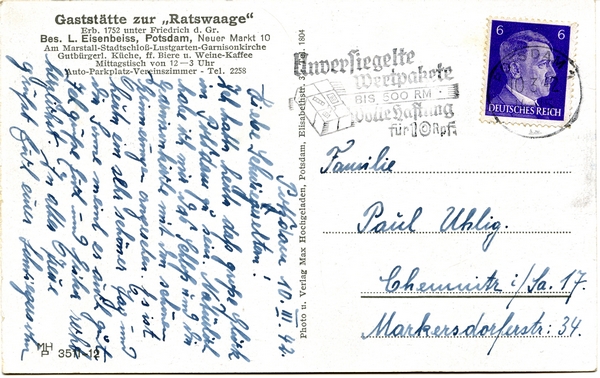 Gaststätte zur „Ratswaage“
Erb. 1752 unter Friedrich d. Gr.
Bes. L. Eisenbeiss, Potsdam, Neuer Markt 10
Am Marstall-Stadtschloß-Lustgarten-Garnisonkirche
Gutbürgerl. Küche, ff. Biere u. Weine-Kaffee
Mittagstisch von 12—3 Uhr
Auto-Parkplatz-Vereinszimmer - Tel. 2258
Potsdam 10. III. 42.
Liebe Schwiegereltern!
Ich habe heute das große Glück
in Potsdam zu sein. Natürlich
hab ich mir das Schloß u. die
Garnisonkirche mit dem schönen
angesehen. Es ist
heute ein sehr schöner Tag und
die Sonne meint es auch gut.
MH
P 3571 12
Photo u. Verlag Max Hochgeladen, Potsdam, Elisabethstr. 1804
Unversiegelte
Wertpakete
BIS 500 RM
volle Haftung
für 10 Rpf.
6 6
DEUTSCHES REICH
Familie
Paul Uhlig.
Chemnitz i/Sa. 17.
Markersdorferstr. 34.